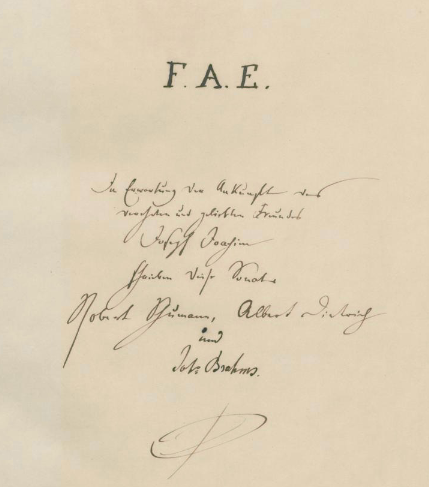 F. A. E.
In Erwartung der Ankunft des
verehrten und geliebten Freundes
Joseph Joachim
schrieben diese Sonate
Robert Schumann, Albert Dietrich
und
Johs Brahms.